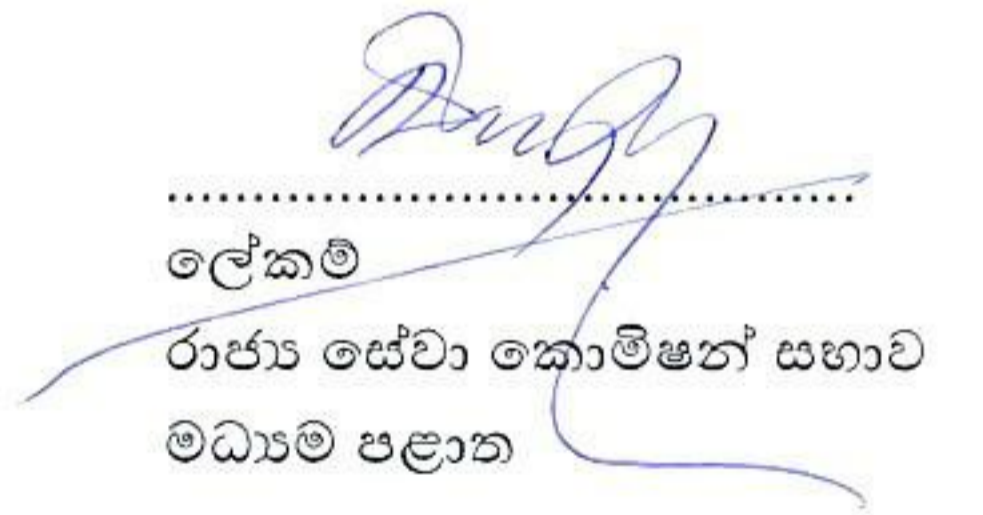 ..................................................................
ලේකම්
රාජ්‍ය සේවා කොමිෂන් සභාව
මධ්‍යම පළාත